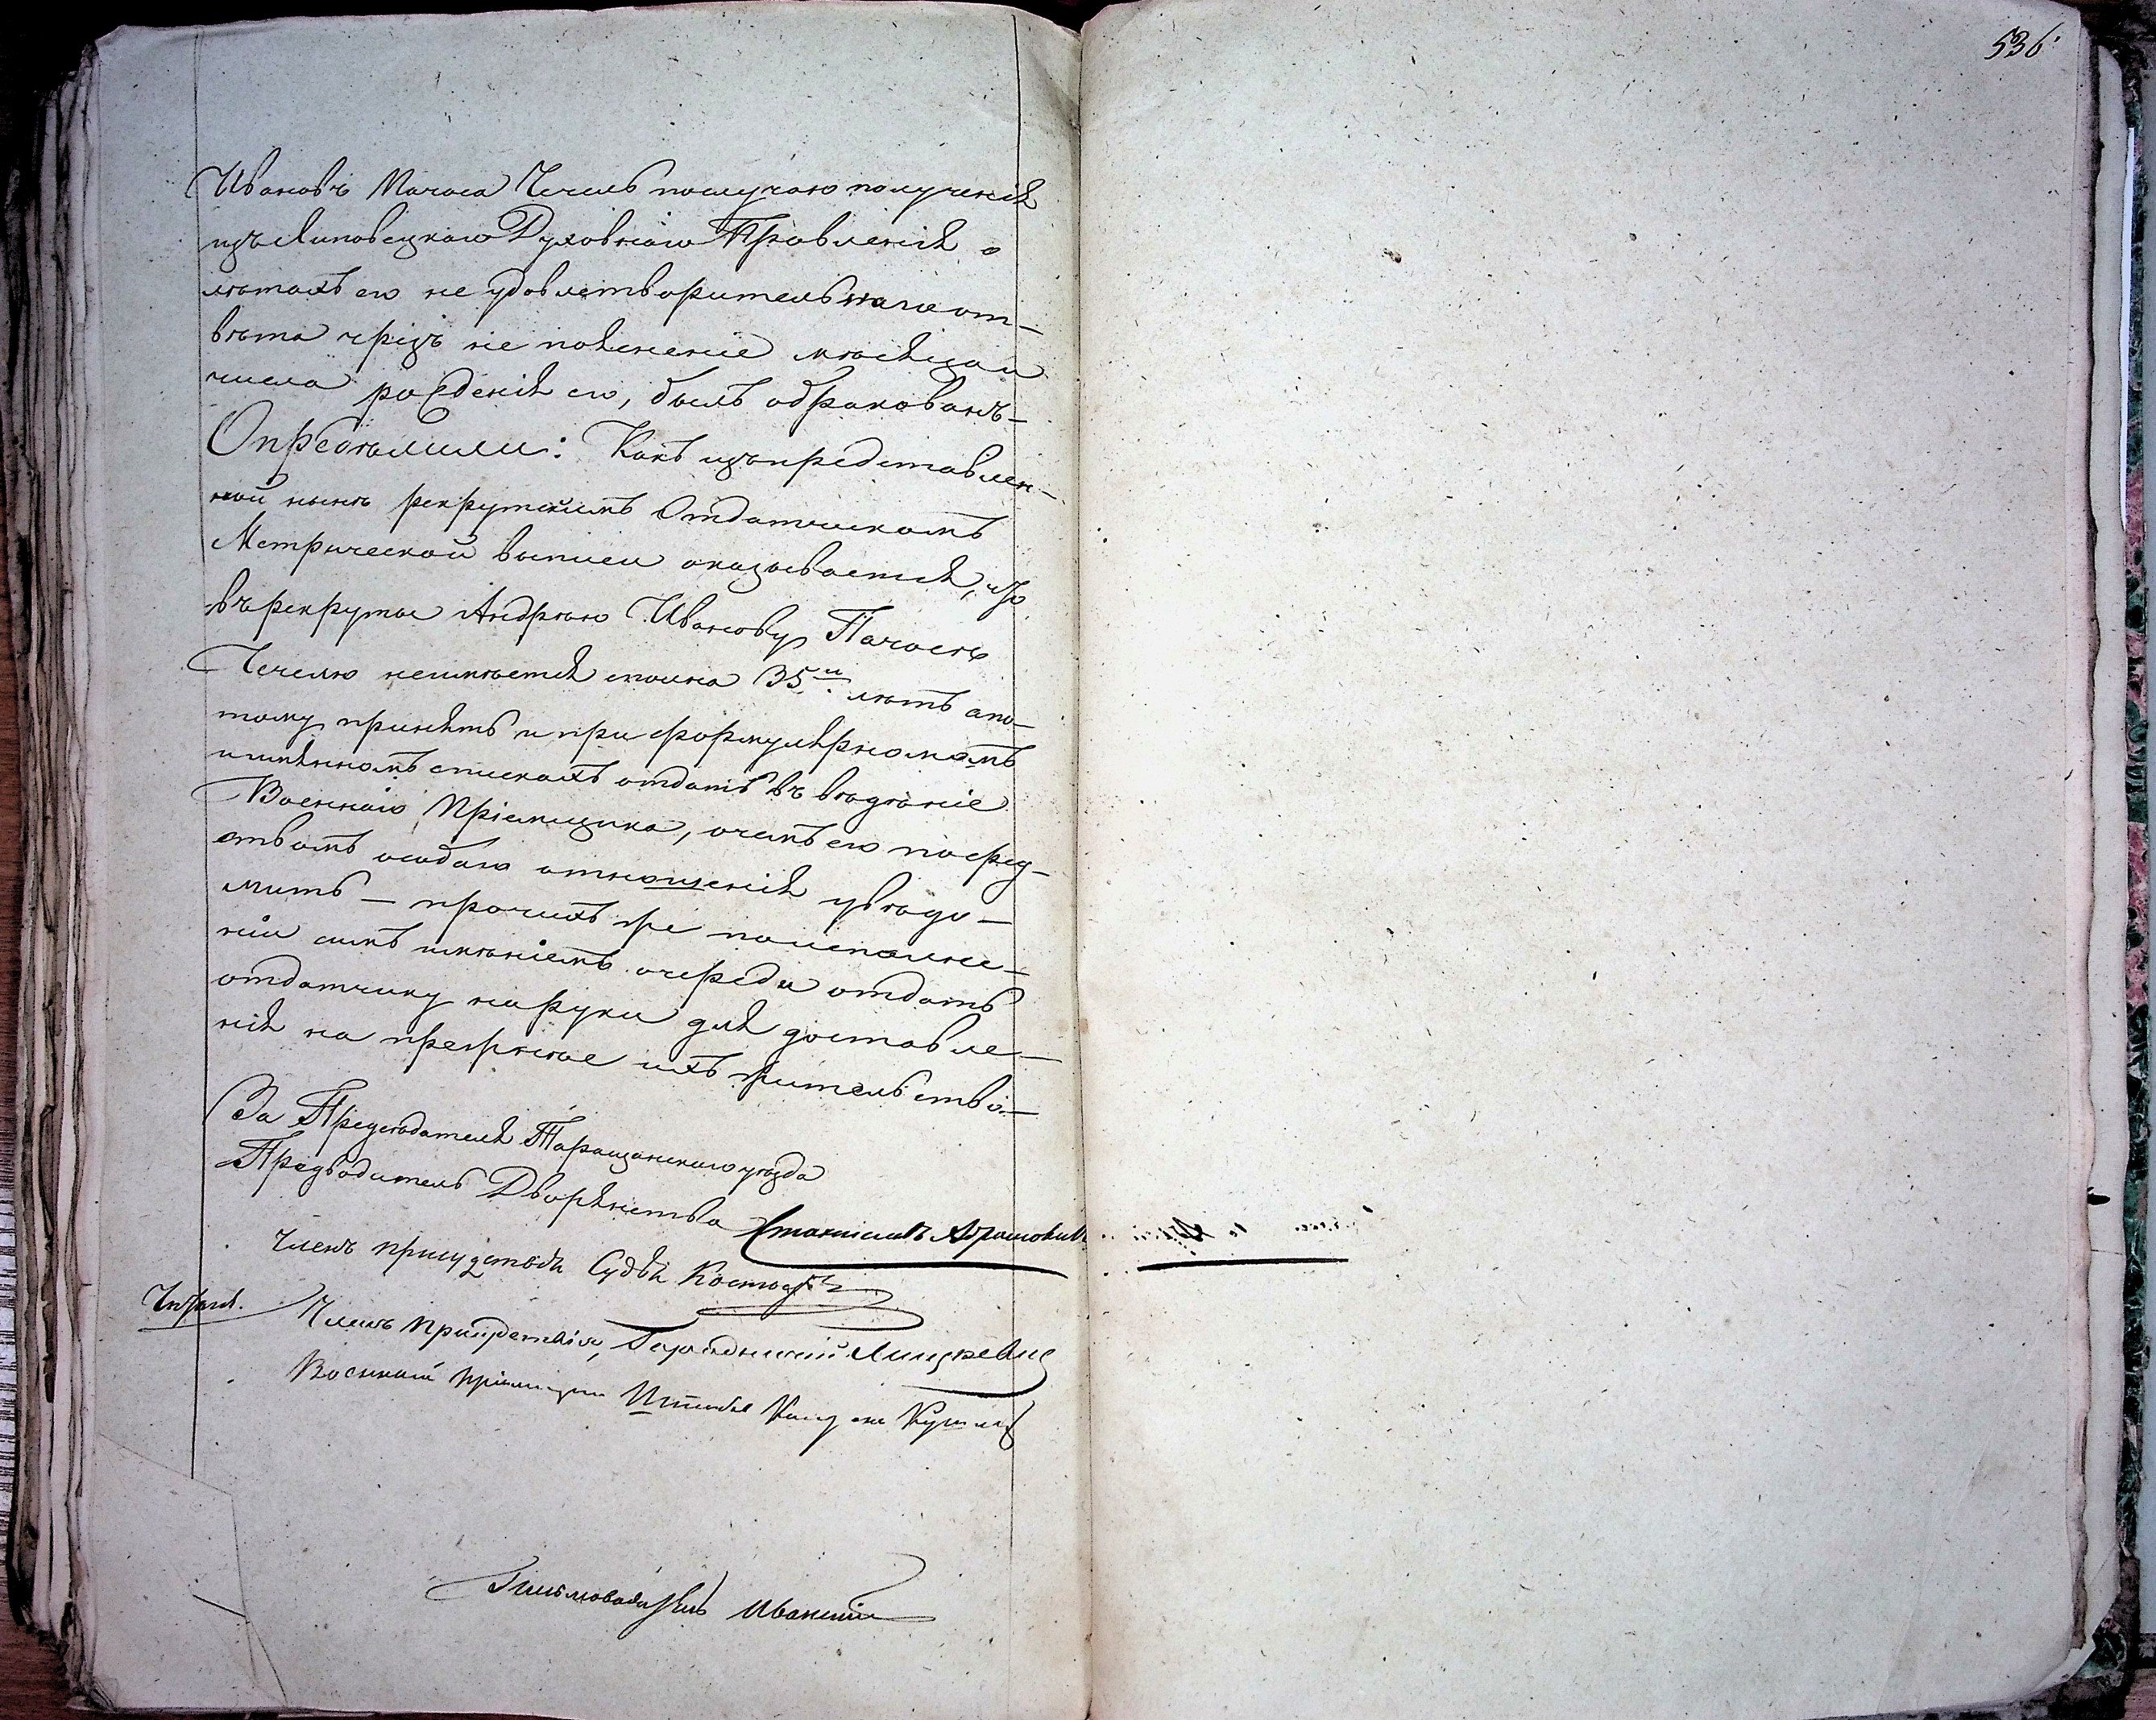 536
Ивановъ Пачоса Чечель послучаю полученія
изъ Липовецкаго Духовнаго Правленія о
лѣтахъ его не удовлетворительнаго от-
вѣта чрезъ не поясненіе мѣсяца и
числа рожденія его, былъ обракованъ —
Опредѣлили: Какъ изъ представлен-
ной нынѣ рекрутскимъ Отдатчикомъ
Метрической выписи оказывается, что
въ рекруты Андрѣю Иванову Пачосѣ
Чечелю неимѣется полна 35ти лѣтъ а по-
тому принять и при формулярномъ
и имянномъ спискахъ отдать въ вѣдѣніе
Военнаго Пріемщика, о чемъ его посред-
ствомъ особаго отношенія увѣдо-
мить — прочихъ же по исполне-
ніи симъ имѣніемъ очереди отдать
отдатчику на руки для доставле-
нія на прежнее ихъ жительство —
За Предсѣдателя Таращанскаго уѣзда
Предводитель Дворянства Станиславъ
Членъ присудствія Судья
Членъ Присудствія, Городничій
Военный пріемщикъ Штабсъ Капитанъ
Письмоводитель